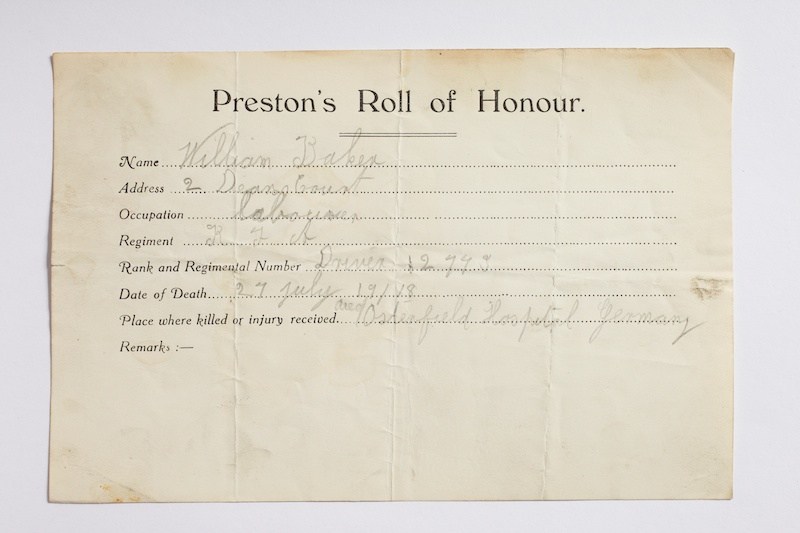 Preston's Roll of Honour.
Name William Baker
Address 2 Deans Court
Occupation labourer
Regiment R F A
Rank and Regimental Number Driver
Date of Death 27 July 1918
Place where killed or injury received died Hospital Germany
Remarks :—